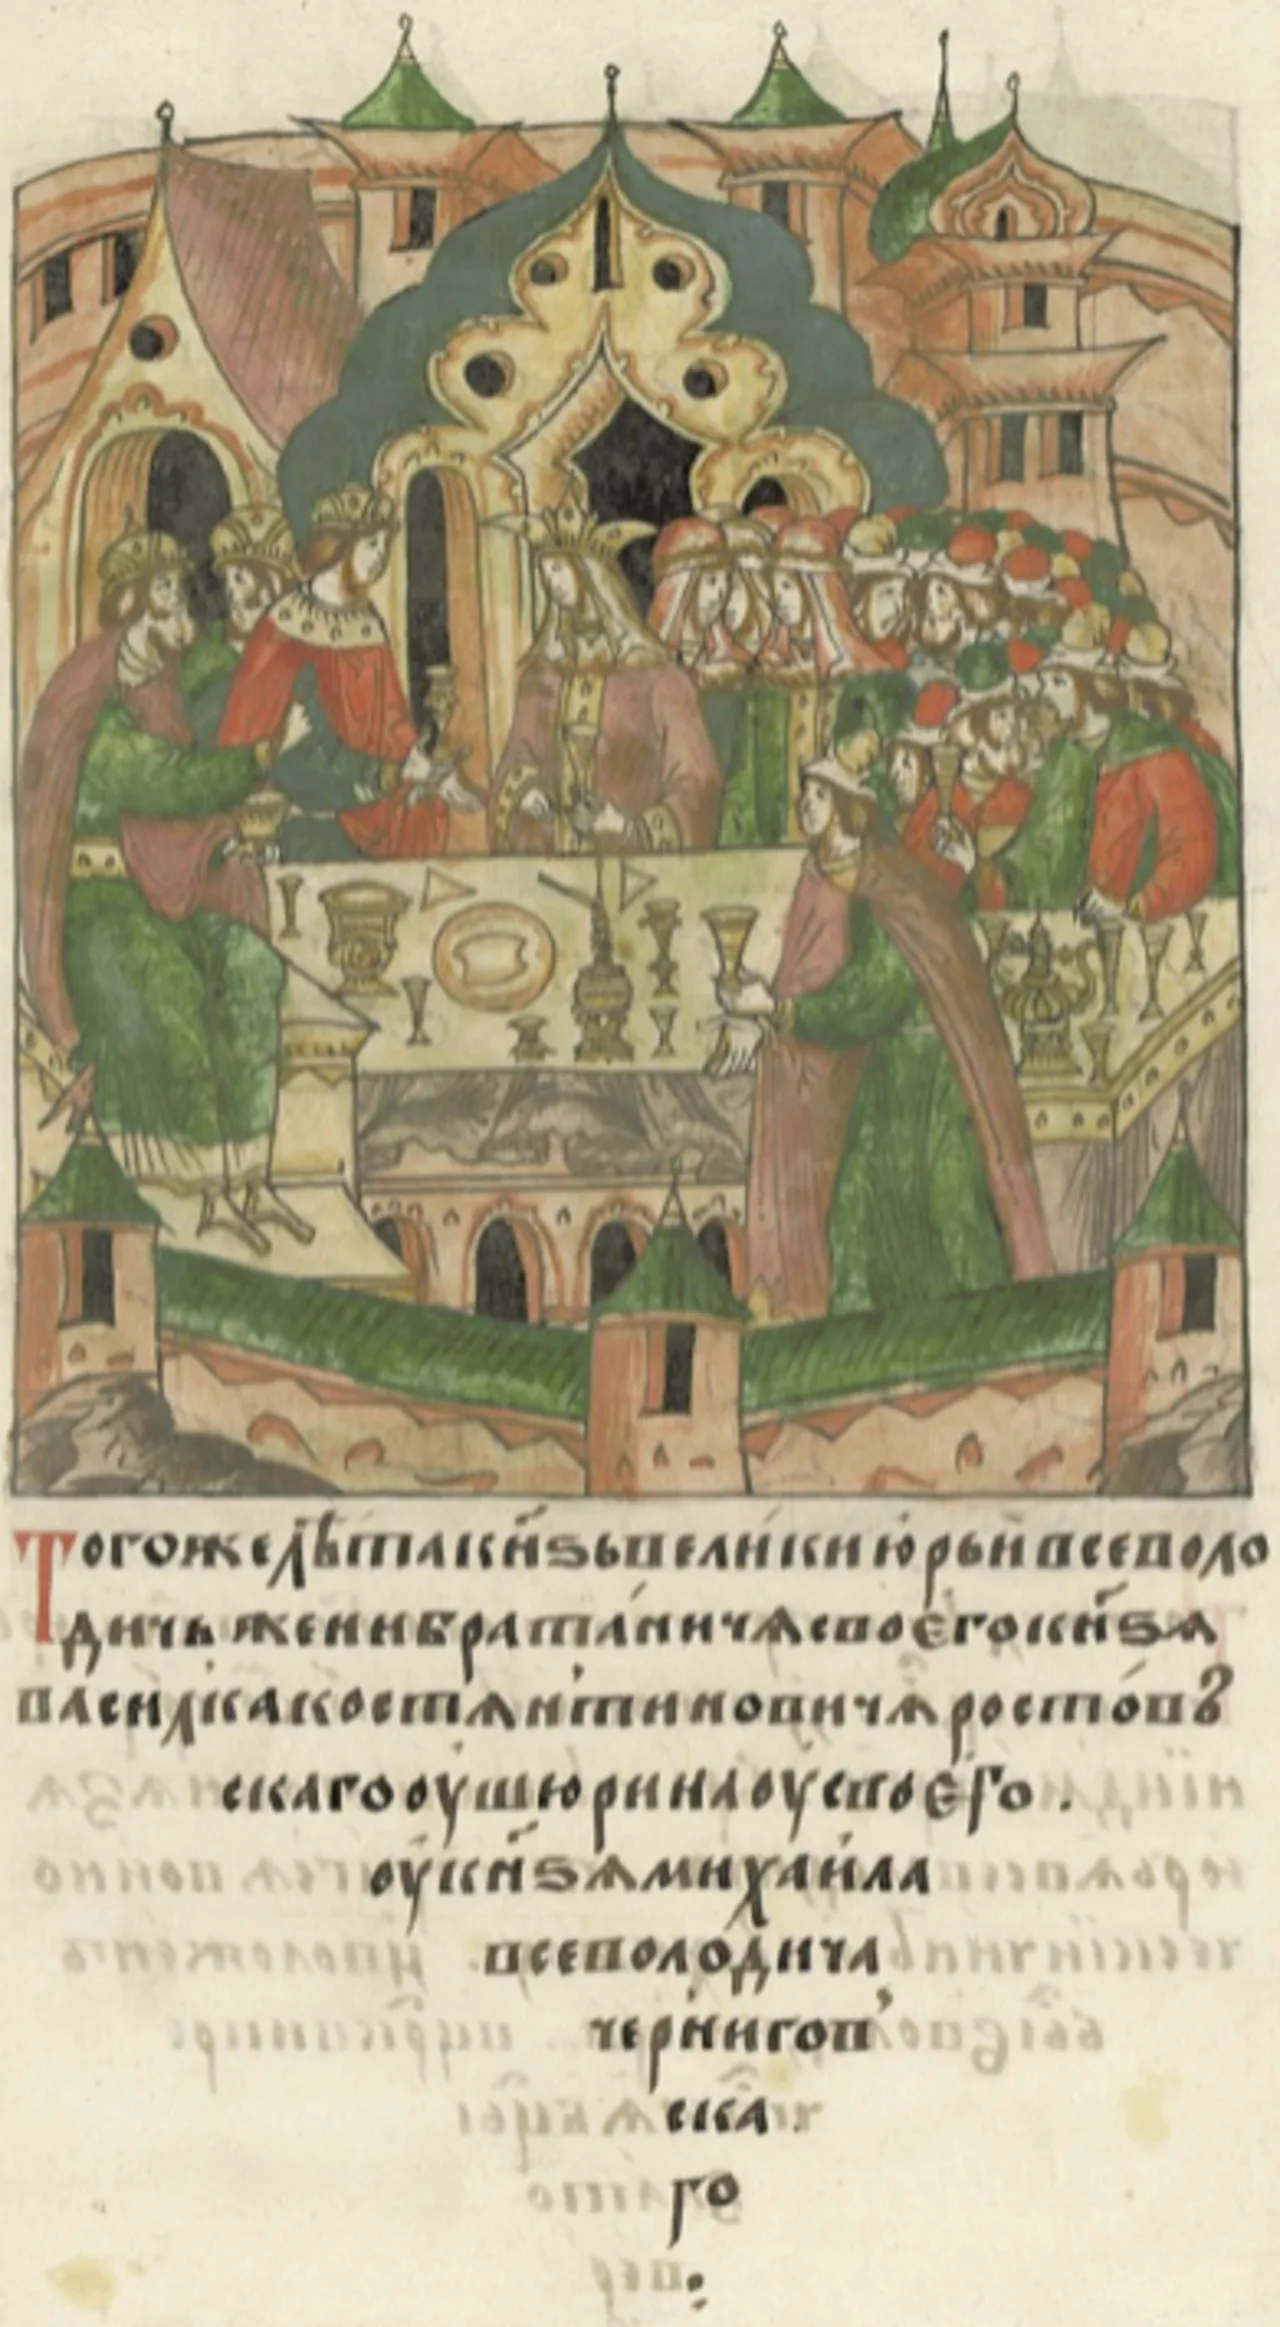 Тогожелѣтакн҃ѕьвели́кии ю́рьи всеволо
дичь жени братанича своєго кн҃ѕѧ
васи́лка костѧнтиновичѧ росто́въ
скаго оу шюрина оу своєго .
оу кн҃ѕѧ михаи́ла
всеволо́дича
черни́гов
ска
го
: